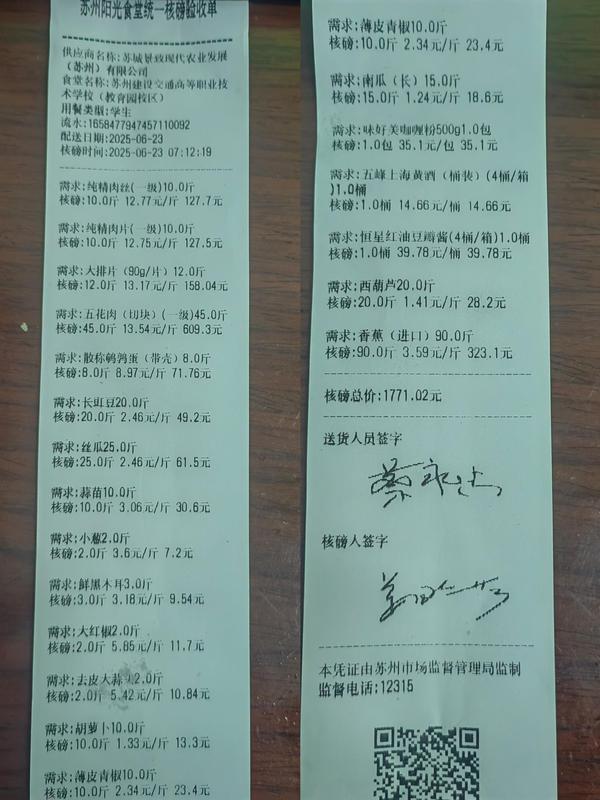 苏州阳光食堂统一核磅验收单
供应商名称:苏城景致现代农业发展
(苏州)有限公司
食堂名称:苏州建设交通高等职业技
术学校(教育园校区)
用餐类型:学生
流水:1658477947457110092
配送日期:2025-06-23
核磅时间:2025-06-23 07:12:19
需求:纯精肉丝(一级)10.0斤
核磅:10.0斤 12.77元/斤 127.7元
需求:纯精肉片(一级)10.0斤
核磅:10.0斤 12.75元/斤 127.5元
需求:大排片(90g/片)12.0斤
核磅:12.0斤 13.17元/斤 158.04元
需求:五花肉(切块)(一级)45.0斤
核磅:45.0斤 13.54元/斤 609.3元
需求:散称鹌鹑蛋(带壳)8.0斤
核磅:8.0斤 8.97元/斤 71.76元
需求:长豇豆20.0斤
核磅:20.0斤 2.46元/斤 49.2元
需求:丝瓜25.0斤
核磅:25.0斤 2.46元/斤 61.5元
需求:蒜苗10.0斤
核磅:10.0斤 3.06元/斤 30.6元
需求:小葱2.0斤
核磅:2.0斤 3.6元/斤 7.2元
需求:鲜黑木耳3.0斤
核磅:3.0斤 3.18元/斤 9.54元
需求:大红椒2.0斤
核磅:2.0斤 5.85元/斤 11.7元
需求:去皮大蒜 2.0斤
核磅:2.0斤 5.42元/斤 10.84元
需求:胡萝卜10.0斤
核磅:10.0斤 1.33元/斤 13.3元
需求:薄皮青椒10.0斤
核磅:10.0斤 2.34元/斤 23.4元
需求:薄皮青椒10.0斤
核磅:10.0斤 2.34元/斤 23.4元
需求:南瓜(长)15.0斤
核磅:15.0斤 1.24元/斤 18.6元
需求:味好美咖喱粉500g1.0包
核磅:1.0包 35.1元/包 35.1元
需求:五峰上海黄酒(桶装)(4桶/箱
)1.0桶
核磅:1.0桶 14.66元/桶 14.66元
需求:恒星红油豆瓣酱(4桶/箱)1.0桶
核磅:1.0桶 39.78元/桶 39.78元
需求:西葫芦20.0斤
核磅:20.0斤 1.41元/斤 28.2元
需求:香蕉(进口)90.0斤
核磅:90.0斤 3.59元/斤 323.1元
核磅总价:1771.02元
送货人员签字
核磅人签字
本凭证由苏州市场监督管理局监制
监督电话:12315